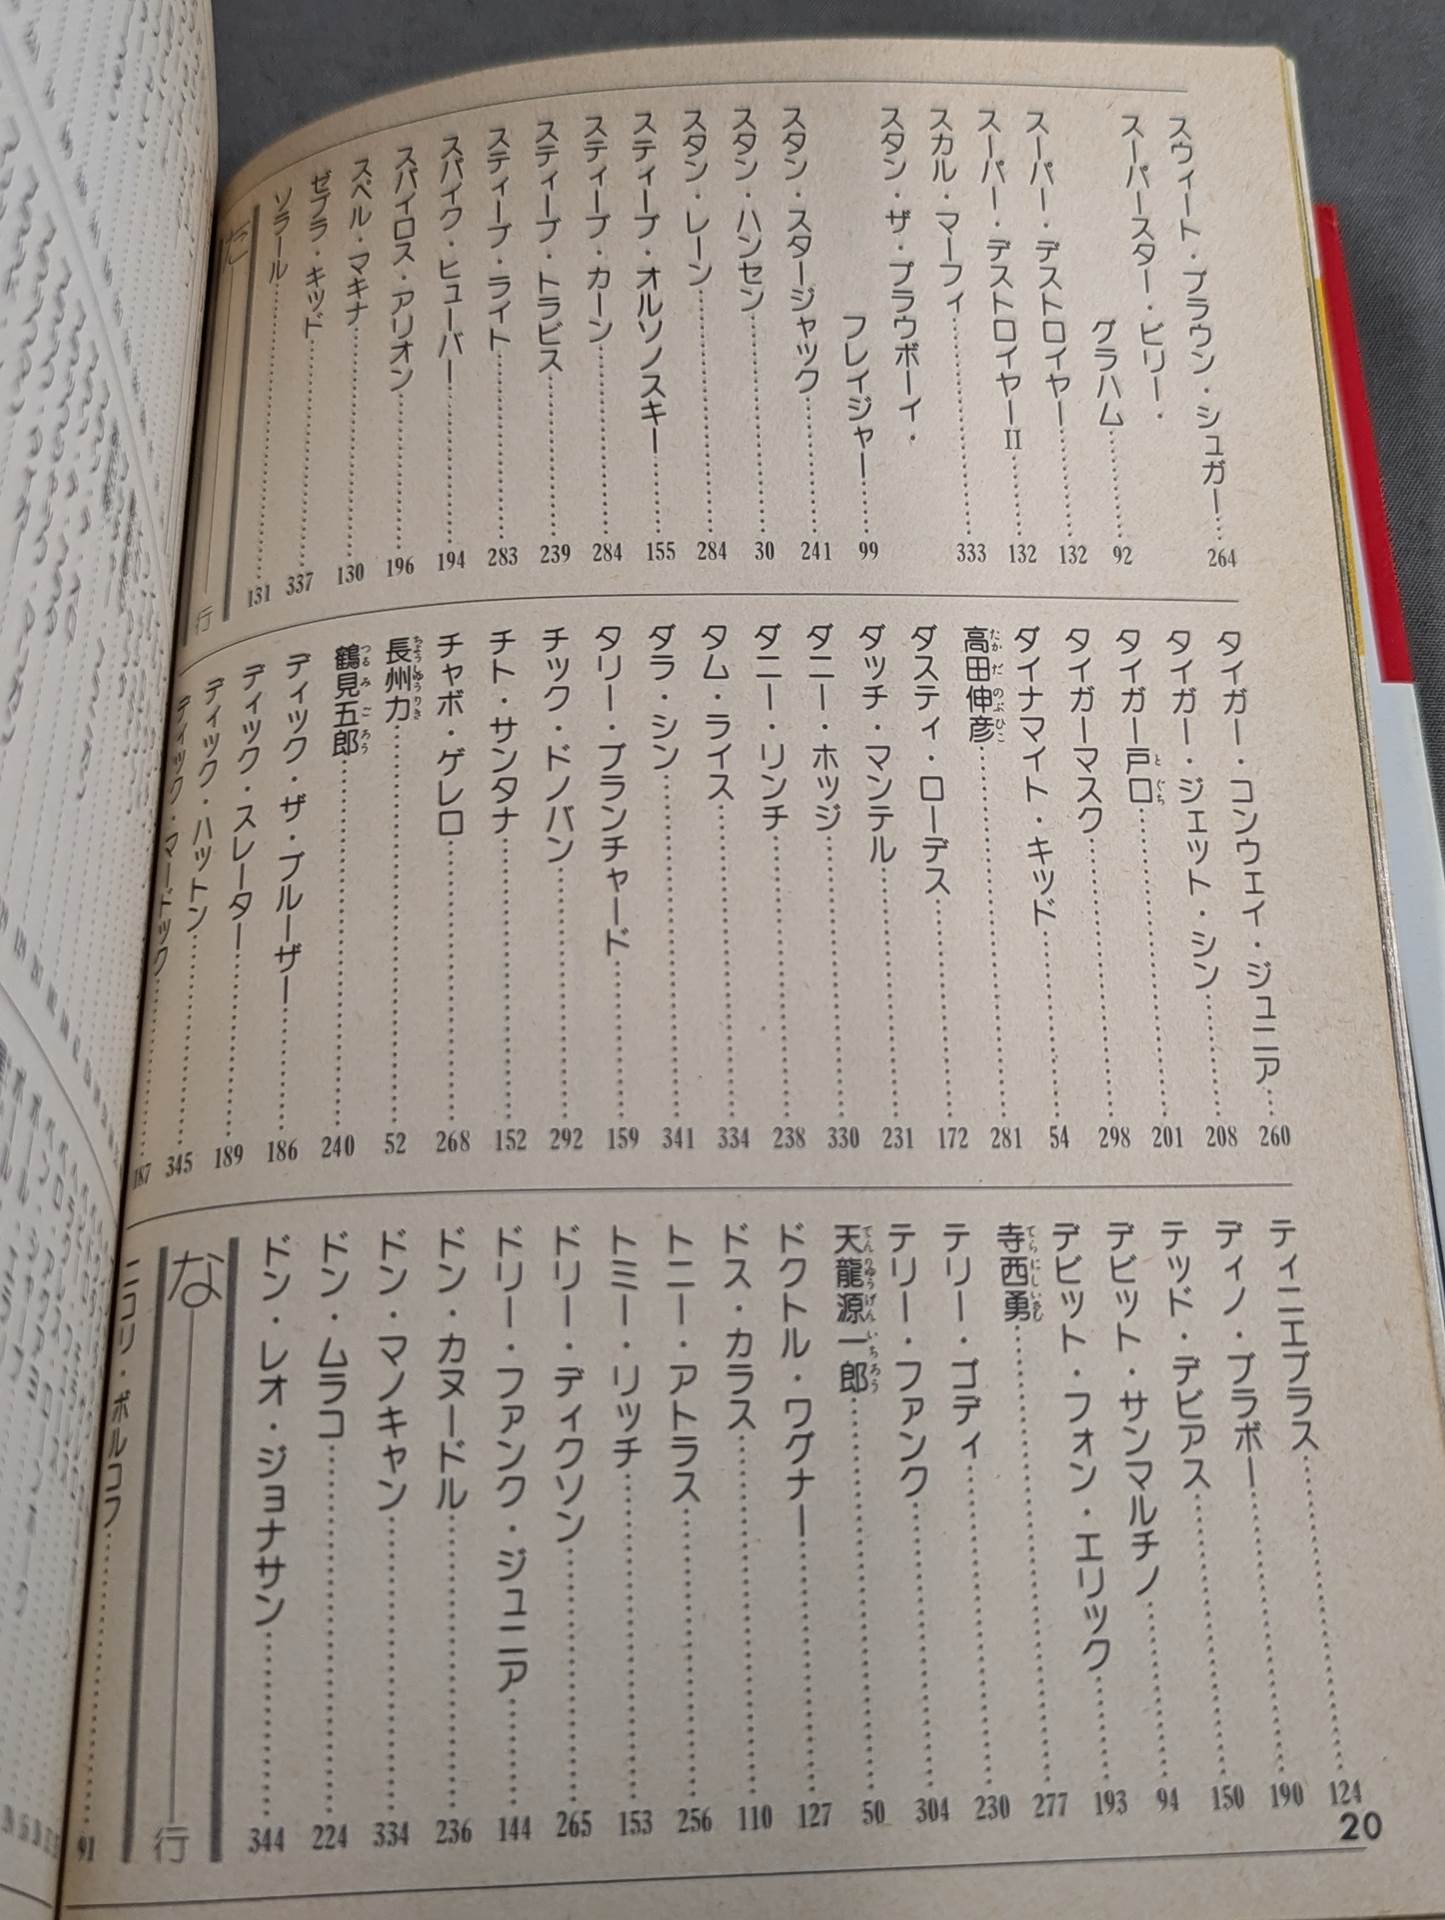 スウィート・ブラウン・シュガー……264
スーパースター・ビリー・
グラハム……92
スーパー・デストロイヤー……132
スーパー・デストロイヤーII……132
スカル・マーフィ……333
スタン・ザ・プラウボーイ・
フレイジャー……99
スタン・スタージャック……241
スタン・ハンセン……30
スタン・レーン……284
スティーブ・オルソノスキー……155
スティーブ・カーン……284
スティーブ・トラビス……239
スティーブ・ライト……283
スパイク・ヒューバー……194
スパイロス・アリオン……196
スペル・マキナ……130
ゼブラ・キッド……337
ソラール……131
た行
タイガー・コンウェイ・ジュニア……260
タイガー・ジェット・シン……208
タイガー戸口……201
タイガーマスク……298
ダイナマイト・キッド……54
高田伸彦……281
ダスティ・ローデス……172
ダッチ・マンテル……231
ダニー・ホッジ……330
ダニー・リンチ……238
タム・ライス……334
ダラ・シン……341
タリー・ブランチャード……159
チック・ドノバン……292
チト・サンタナ……152
チャボ・ゲレロ……268
長州力……52
鶴見五郎……240
ディック・ザ・ブルーザー……186
ディック・スレーター……189
ディック・ハットン……345
ディック・マードック……187
ティニエブラス……124
ディノ・ブラボー……190
テッド・デビアス……150
デビット・サンマルチノ……94
デビット・フォン・エリック……193
寺西勇……277
テリー・ゴディ……230
テリー・ファンク……304
天龍源一郎……50
ドクトル・ワグナー……127
ドス・カラス……110
トニー・アトラス……256
トミー・リッチ……153
ドリー・ディクソン……265
ドリー・ファンク・ジュニア……144
ドン・カヌードル……236
ドン・マノキャン……334
ドン・ムラコ……224
ドン・レオ・ジョナサン……344
な行
ニコリ・ボルコフ……91
20